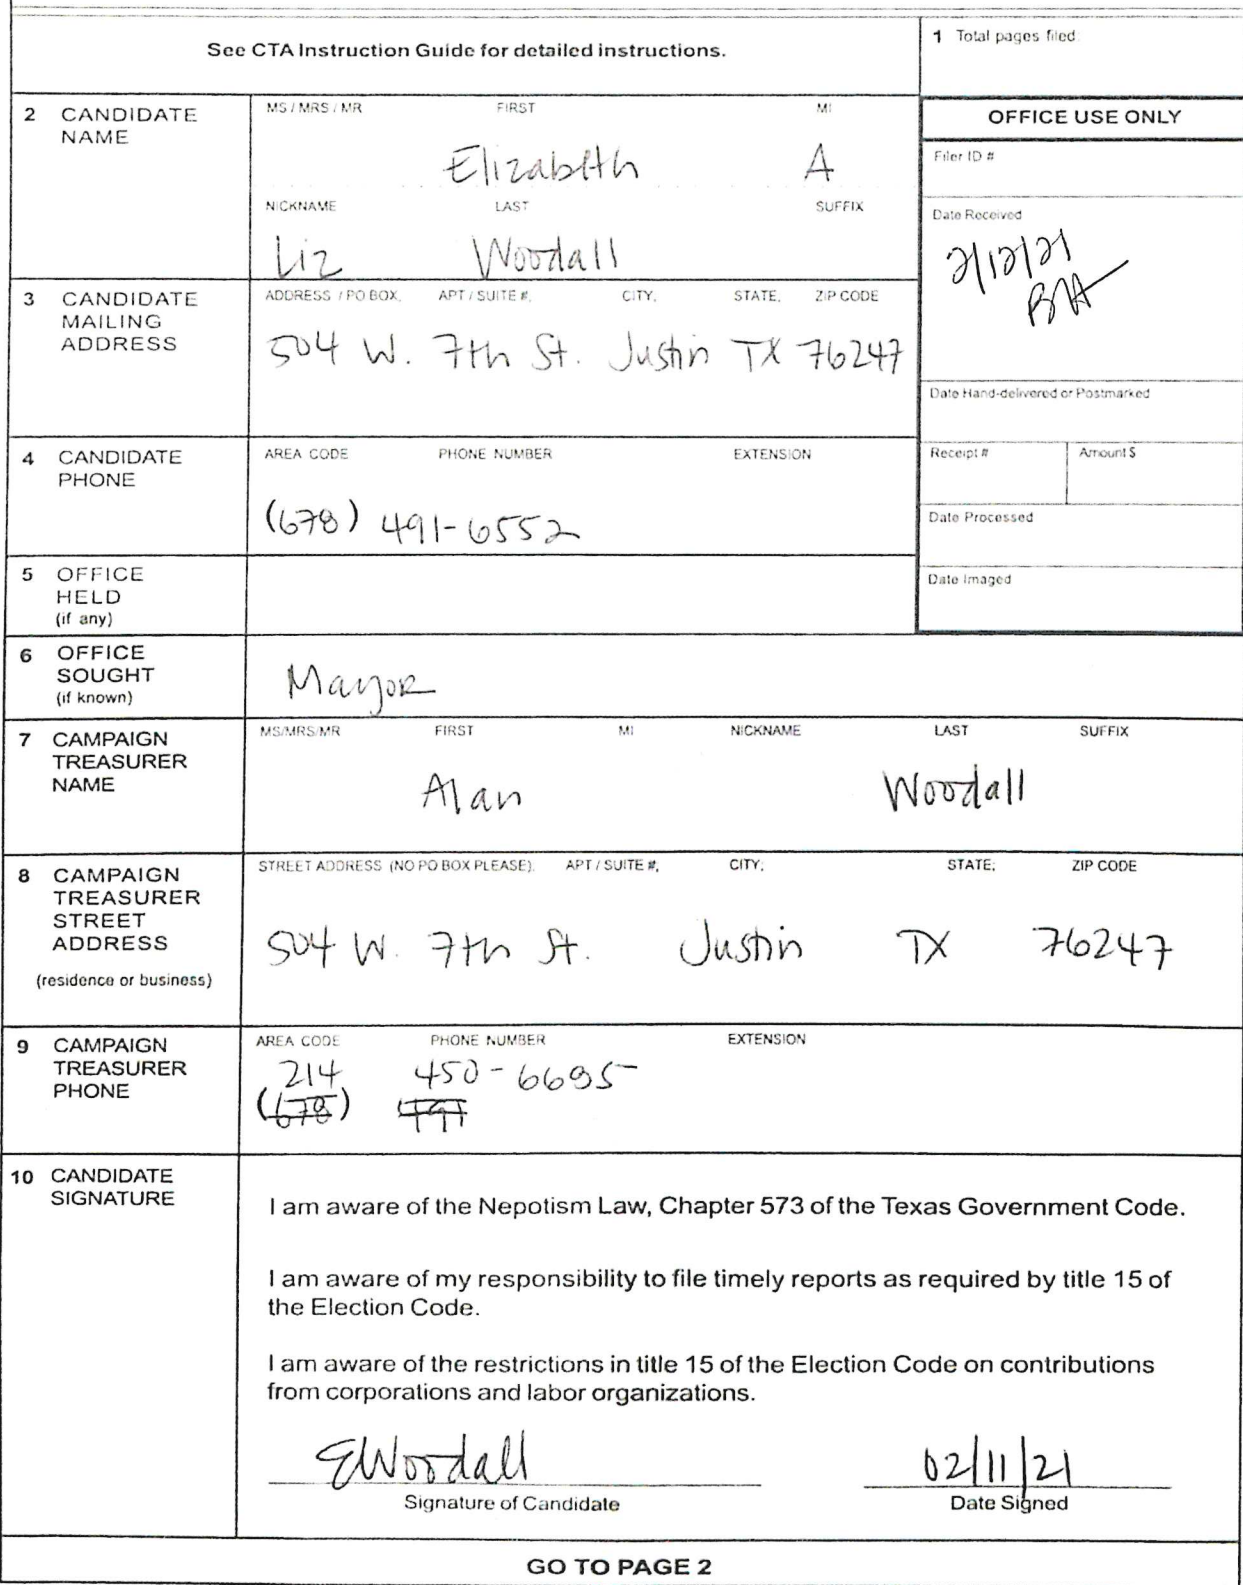 See CTA Instruction Guide for detailed instructions.
1 Total pages filed:
2 CANDIDATE NAME
MS / MRS / MR FIRST MI
Elizabeth A
NICKNAME LAST SUFFIX
Liz Woodall
OFFICE USE ONLY
Filer ID #
Date Received
2/12/21
Date Hand-delivered or Postmarked
Receipt # Amount $
Date Processed
Date Imaged
3 CANDIDATE MAILING ADDRESS
ADDRESS / PO BOX; APT / SUITE #; CITY; STATE; ZIP CODE
504 W. 7th St. Justin TX 76247
4 CANDIDATE PHONE
AREA CODE PHONE NUMBER EXTENSION
(678) 491-6552
5 OFFICE HELD (if any)
6 OFFICE SOUGHT (if known)
Mayor
7 CAMPAIGN TREASURER NAME
MS/MRS/MR FIRST MI NICKNAME LAST SUFFIX
Alan Woodall
8 CAMPAIGN TREASURER STREET ADDRESS
(residence or business)
STREET ADDRESS (NO PO BOX PLEASE); APT / SUITE #; CITY; STATE; ZIP CODE
504 W. 7th St. Justin TX 76247
9 CAMPAIGN TREASURER PHONE
AREA CODE PHONE NUMBER EXTENSION
214 450-6695
(678) 491
10 CANDIDATE SIGNATURE
I am aware of the Nepotism Law, Chapter 573 of the Texas Government Code.
I am aware of my responsibility to file timely reports as required by title 15 of
the Election Code.
I am aware of the restrictions in title 15 of the Election Code on contributions
from corporations and labor organizations.
EWoodall 02/11/21
Signature of Candidate Date Signed
GO TO PAGE 2